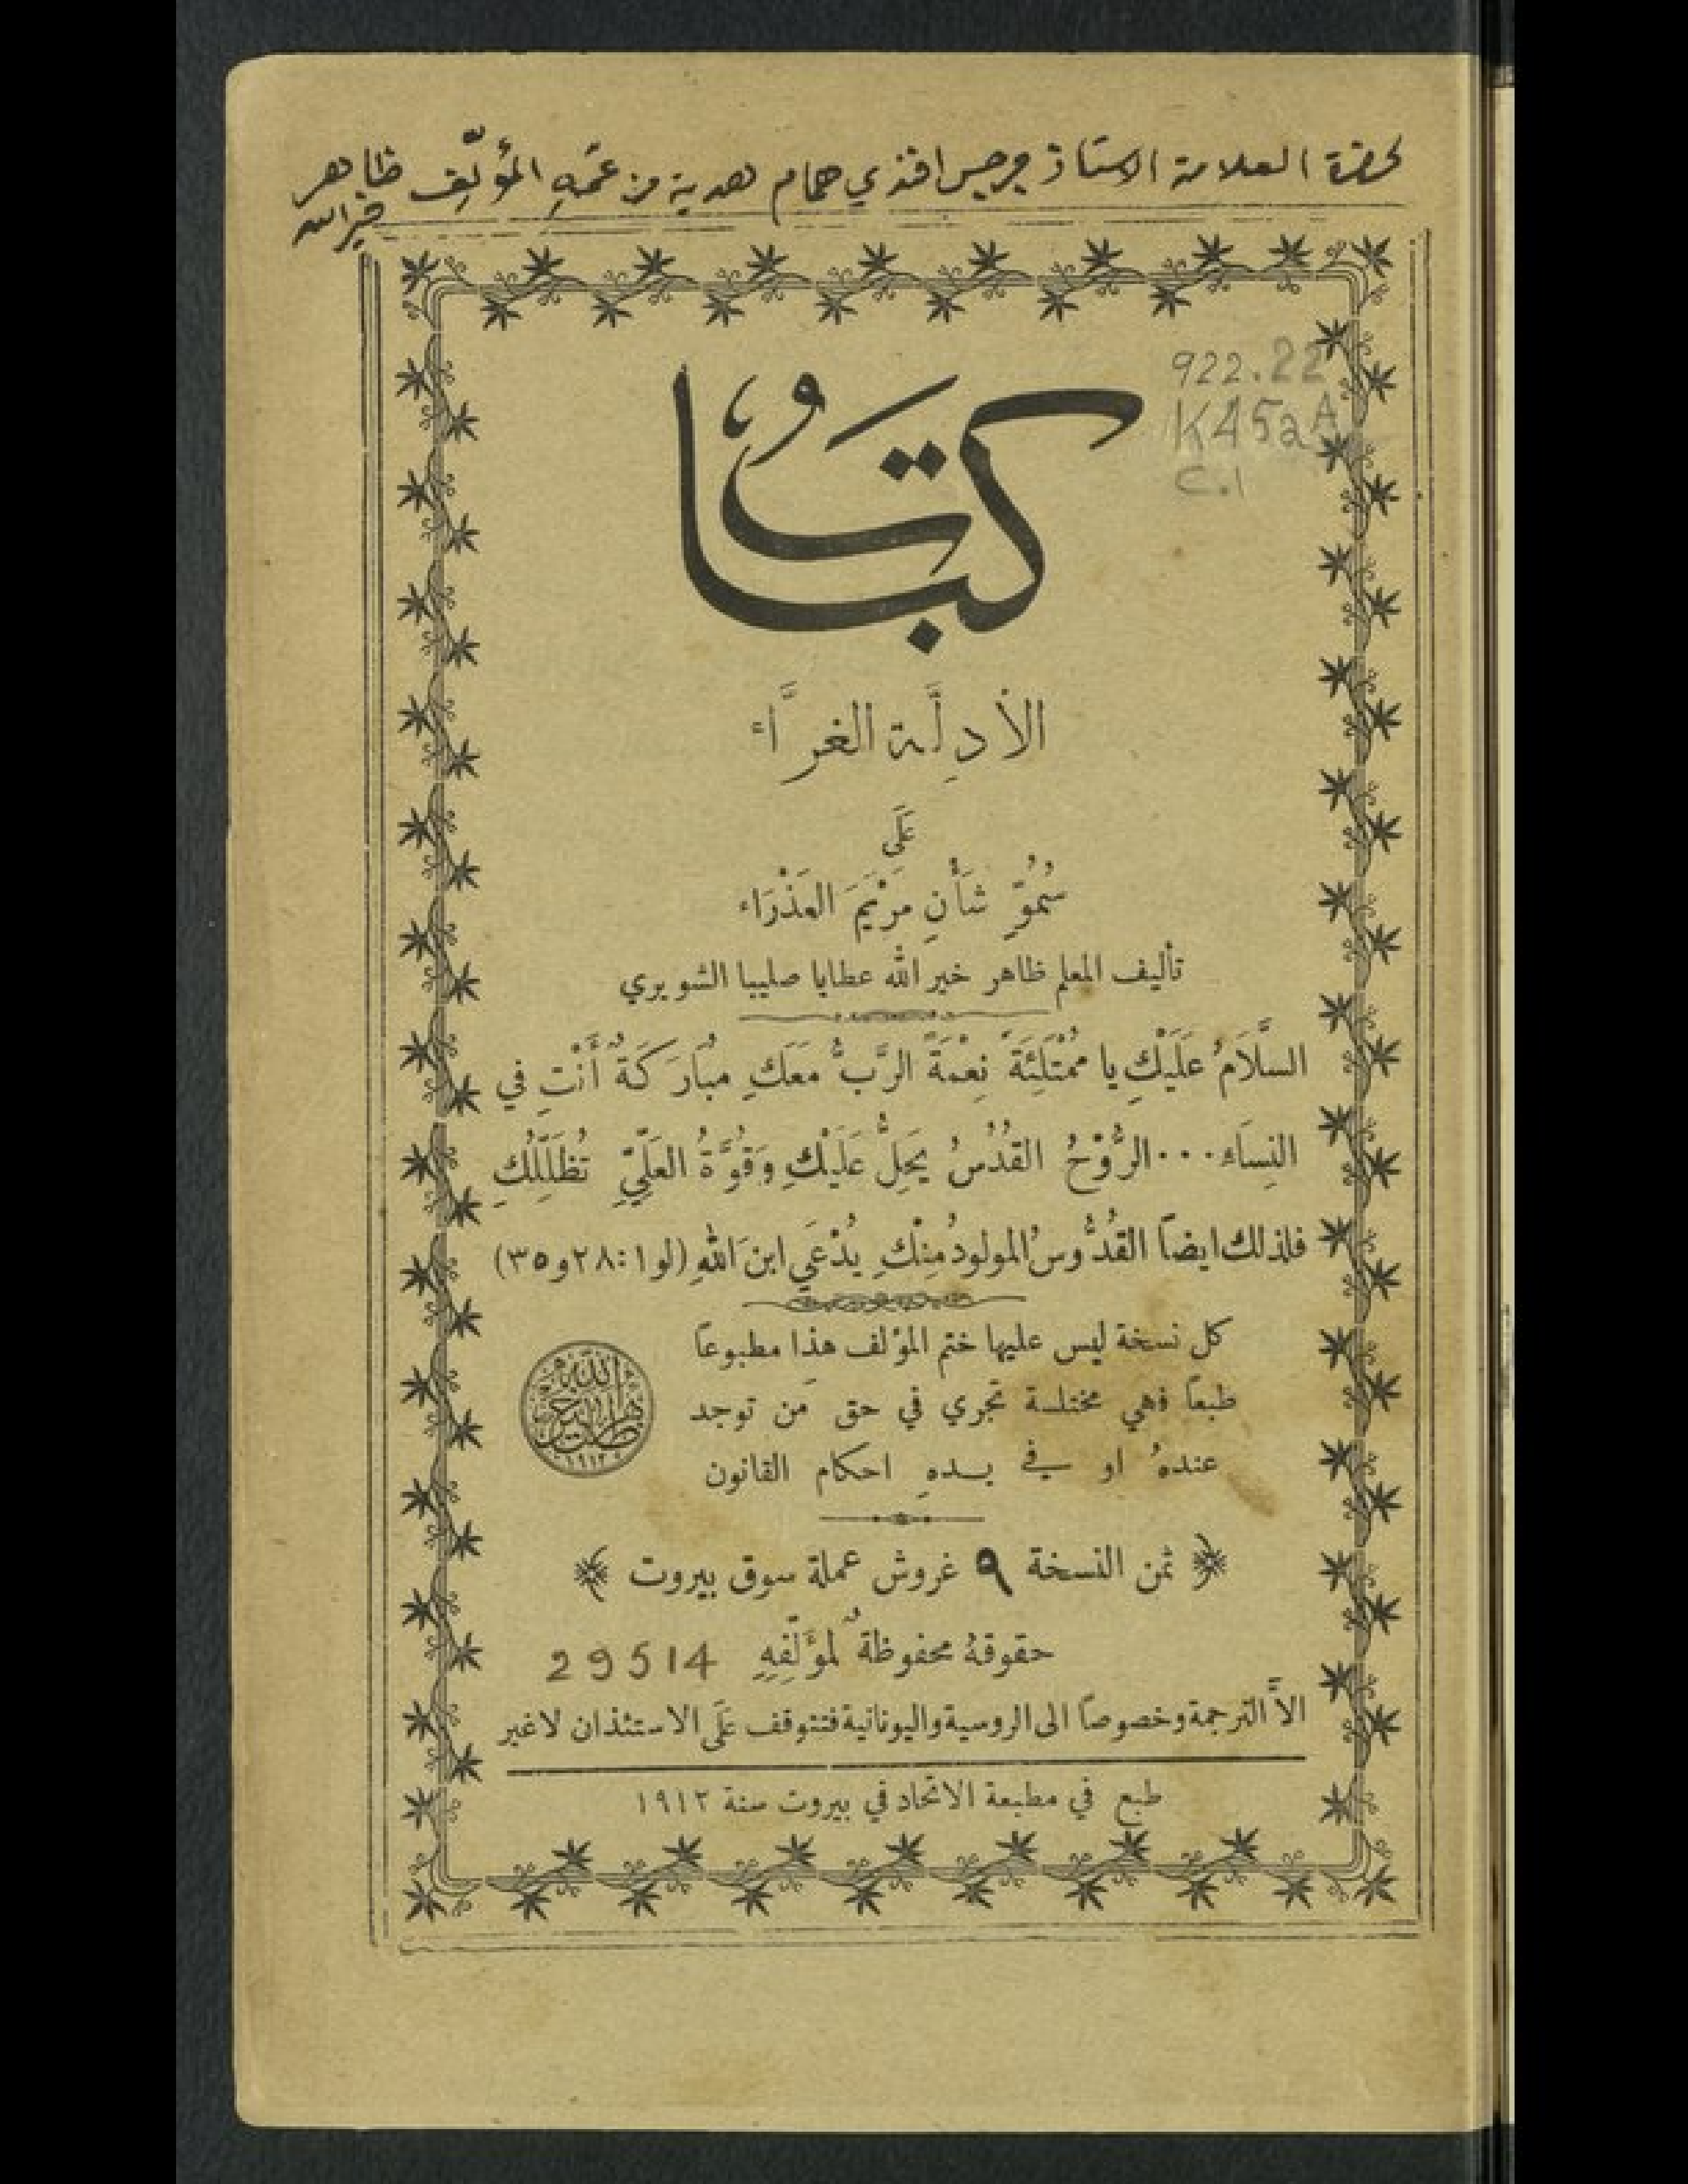 لحضرة العلامة الاستاذ جرجس افندي همام هدية من عمّهِ المؤلّف ظاهر
خيرالله
922.22
K452A
C.1
كتابُ
الأدلَّة الغرَّاء
عَلَى
سُمُوِّ شَأْنِ مَرْيَمَ العَذْرَاء
تأليف المعلم ظاهر خير الله عطايا صليبا الشويري
السَّلَامُ عَلَيْكِ يا مُمْتَلِئَةً نِعْمَةً الرَّبُّ مَعَكِ مُبَارَكَةٌ أَنْتِ في
النِسَاء...الرُّوْحُ القُدُسُ يَحِلُّ عَلَيْكِ وَقُوَّةُ العَلِيِّ تُظَلِّلُكِ
فلذلك ايضاً القُدُّوسُ المولودُ مِنْكِ يُدْعَى ابنَ اللهِ (لو١:٢٨و٣٥)
كل نسخة ليس عليها ختم المؤلف هذا مطبوعاً
طبعاً فهي مختلسة تجري في حق مَن توجد
عندهُ او في يدهِ احكام القانون
١٩١٢
ثمن النسخة ٩ غروش عملة سوق بيروت
حقوقهُ محفوظةٌ لمؤَلِّفِهِ 29514
الاَّ الترجمة وخصوصاً الى الروسية واليونانية فتتوقف عَلَى الاستئذان لا غير
طبع في مطبعة الاتحاد في بيروت سنة ١٩١٢